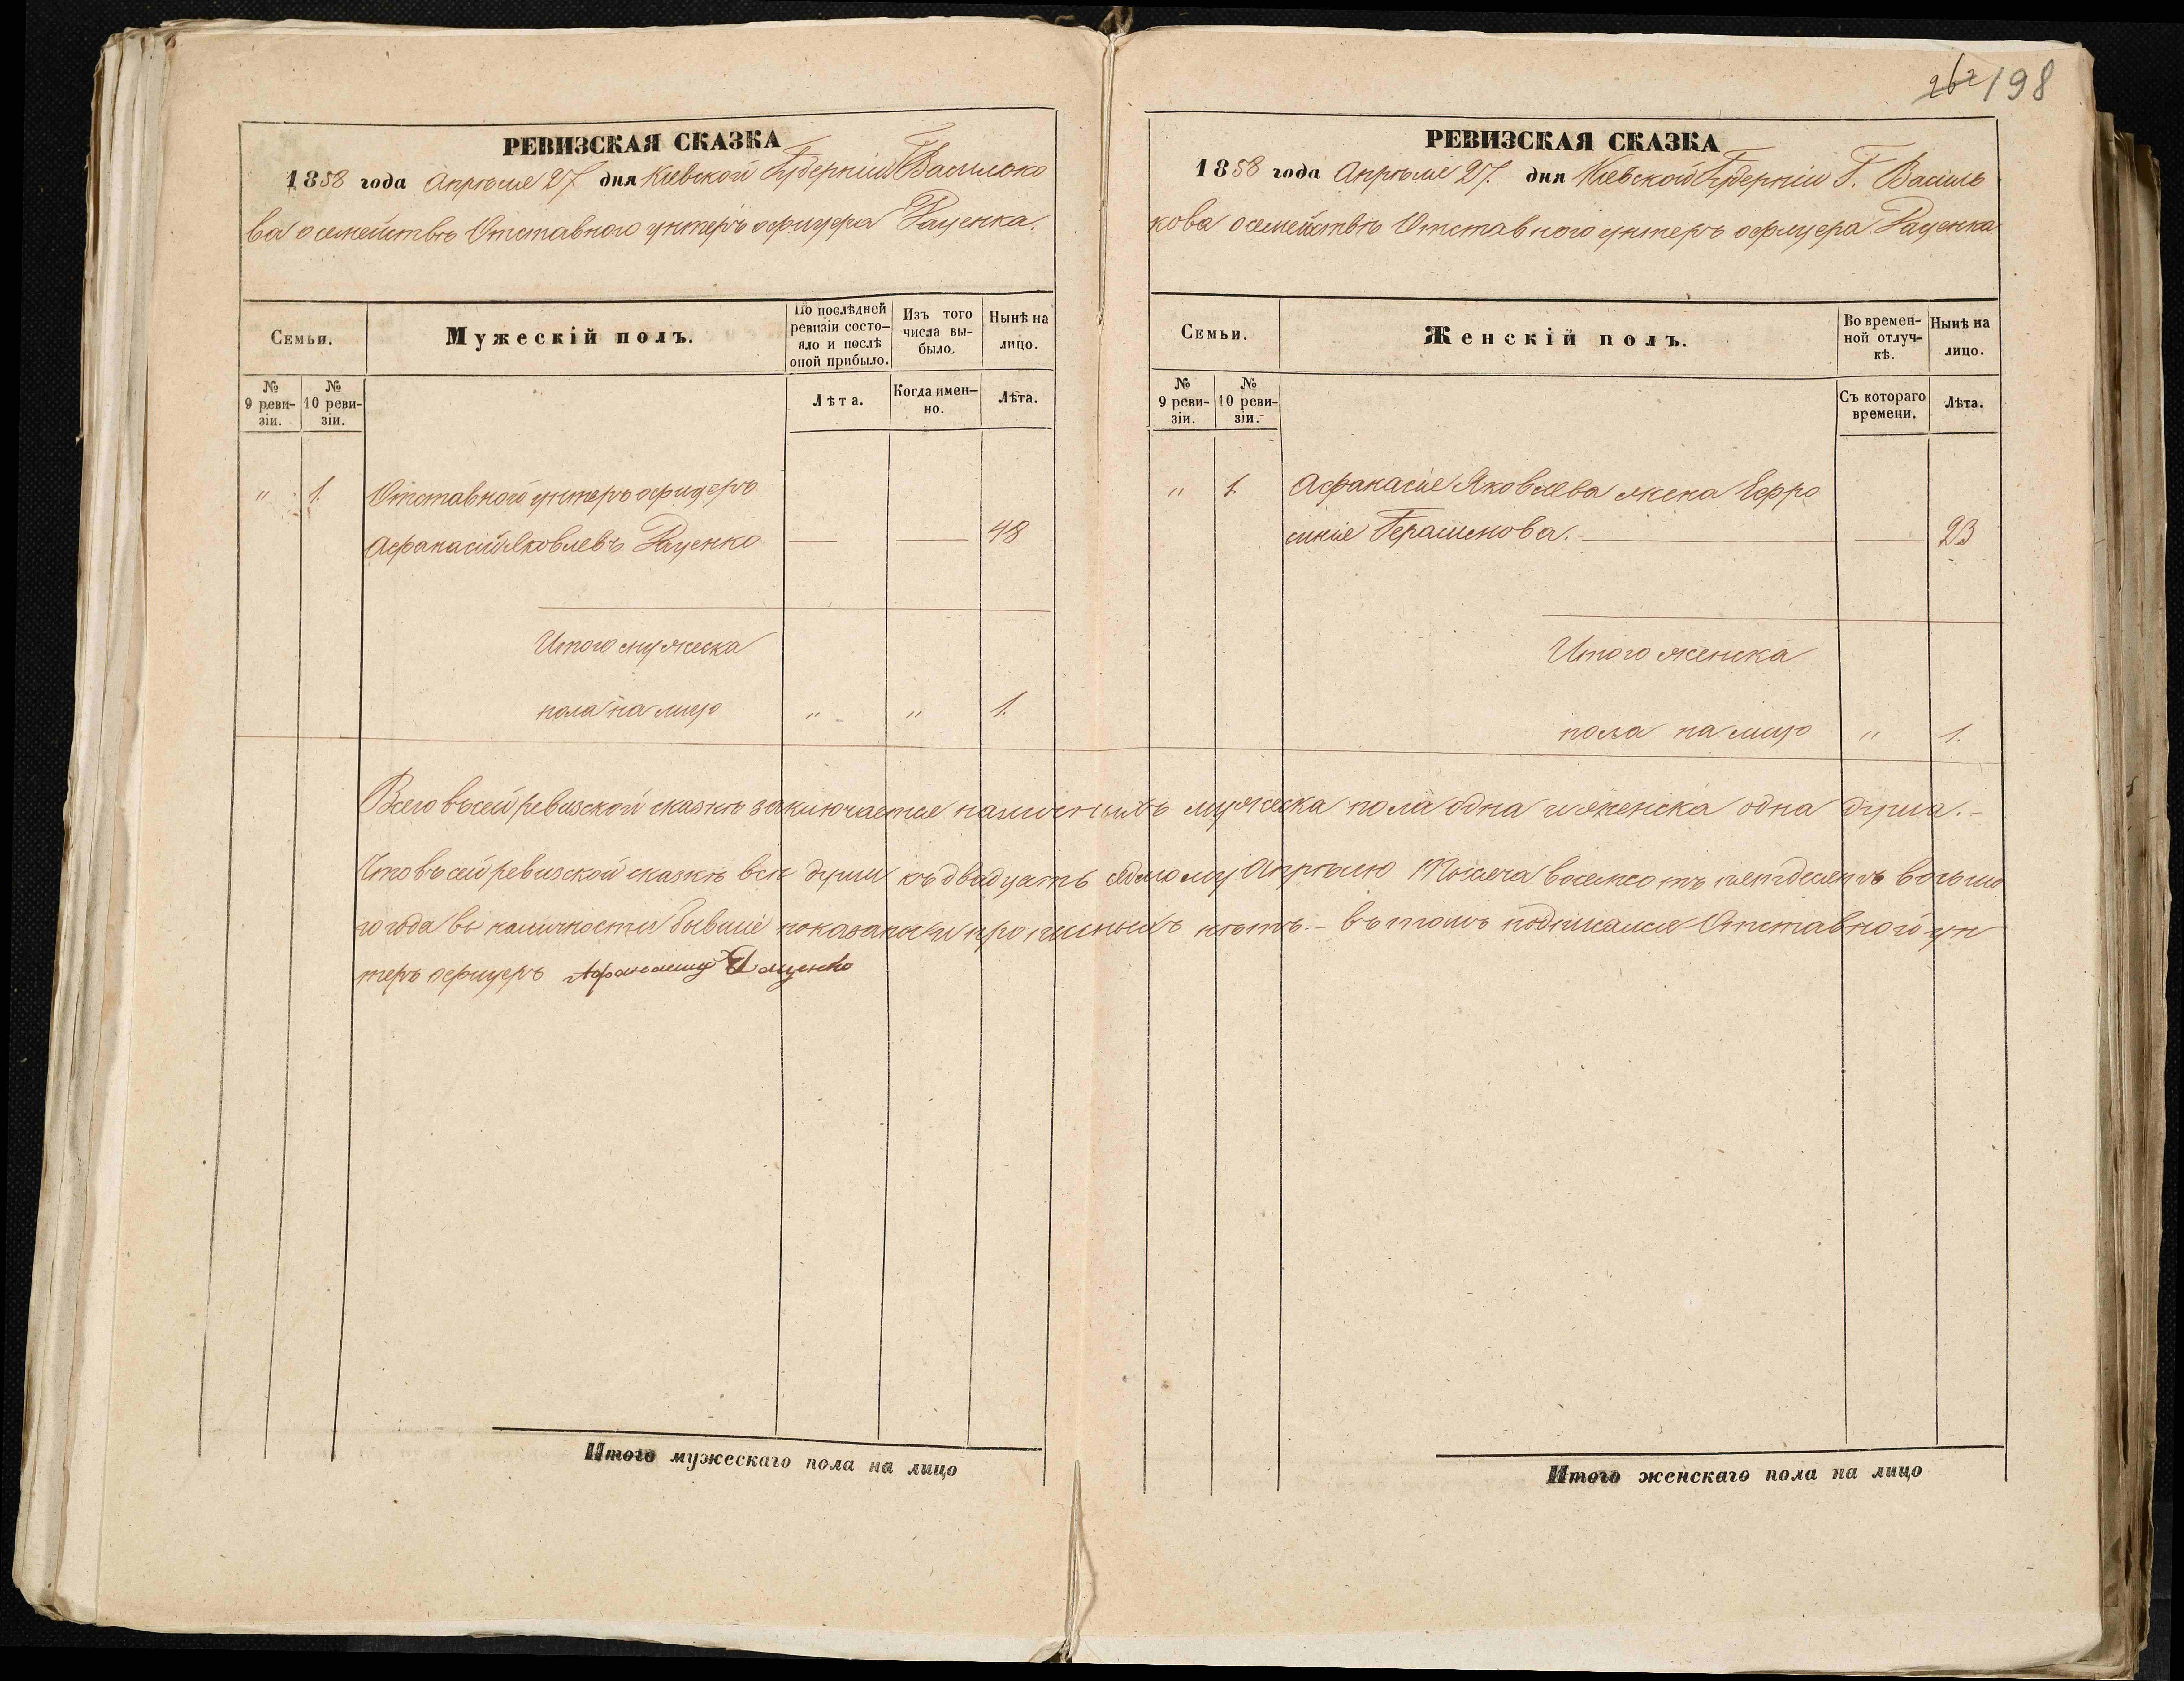 262 198
РЕВИЗСКАЯ СКАЗКА
1858 года Апрѣля 27 дня Кіевской Губерніи Г. Василько
ва о семействѣ Отставного унтеръ офицера Раценка.
Семьи.
Мужескій полъ.
По послѣдней ревизіи состо-
яло и послѣ
оной прибыло.
Изъ того
числа вы-
было.
Нынѣ на
лицо.
№
9 реви-
зіи.
№
10 реви-
зіи.
Лѣта.
Когда имен-
но.
Лѣта.
" 1. Отставной унтеръ офицеръ
Афанасій Яковлевъ Раценко — — 48
Итого мужеска
пола на лицо " " 1.
РЕВИЗСКАЯ СКАЗКА
1858 года Апрѣля 27. дня Кіевской Губерніи Г. Василь
кова о семействѣ Отставного унтеръ офицера Раценка
Семьи.
Женскій полъ.
Во времен-
ной отлуч-
кѣ.
Нынѣ на
лицо.
№
9 реви-
зіи.
№
10 реви-
зіи.
Съ котораго
времени.
Лѣта.
" 1. Афанасія Яковлева жена Ефро
синія Герасимова. — — 23
Итого женска
пола на лицо " 1.
Всего въ сей ревизской сказкѣ заключается наличныхъ мужеска пола одна и женска одна душа. -
Что въ сей ревизской сказкѣ всѣ души къ двадцать седьмому Апрѣлю тысяча восемсотъ пятдесятъ восьмо
го года въ наличности бывшіе показаны и прописныхъ нѣтъ. - въ томъ подписался Отставной ун
теръ офицеръ Афанасий
Итого мужескаго пола на лицо
Итого женскаго пола на лицо